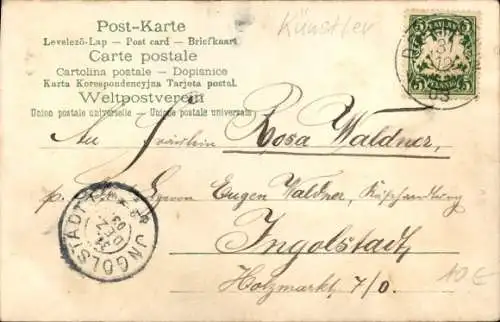 Post-Karte
Künstler
Levelezö-Lap — Post card — Briefkaart
Carte postale
Cartolina postale — Dopisnice
Karta Korespondencyjna Tarjeta postal.
Weltpostverein
Union postale universelle — Unione postale universale
BAYERN
5 5
PFENNIG
31
12
03
An Fräulein Rosa Waldner,
p. Herrn Eugen Waldner, Käsehandlung
Ingolstadt
Holzmarkt 7/0.
INGOLSTADT
31
DEZ
03
10€